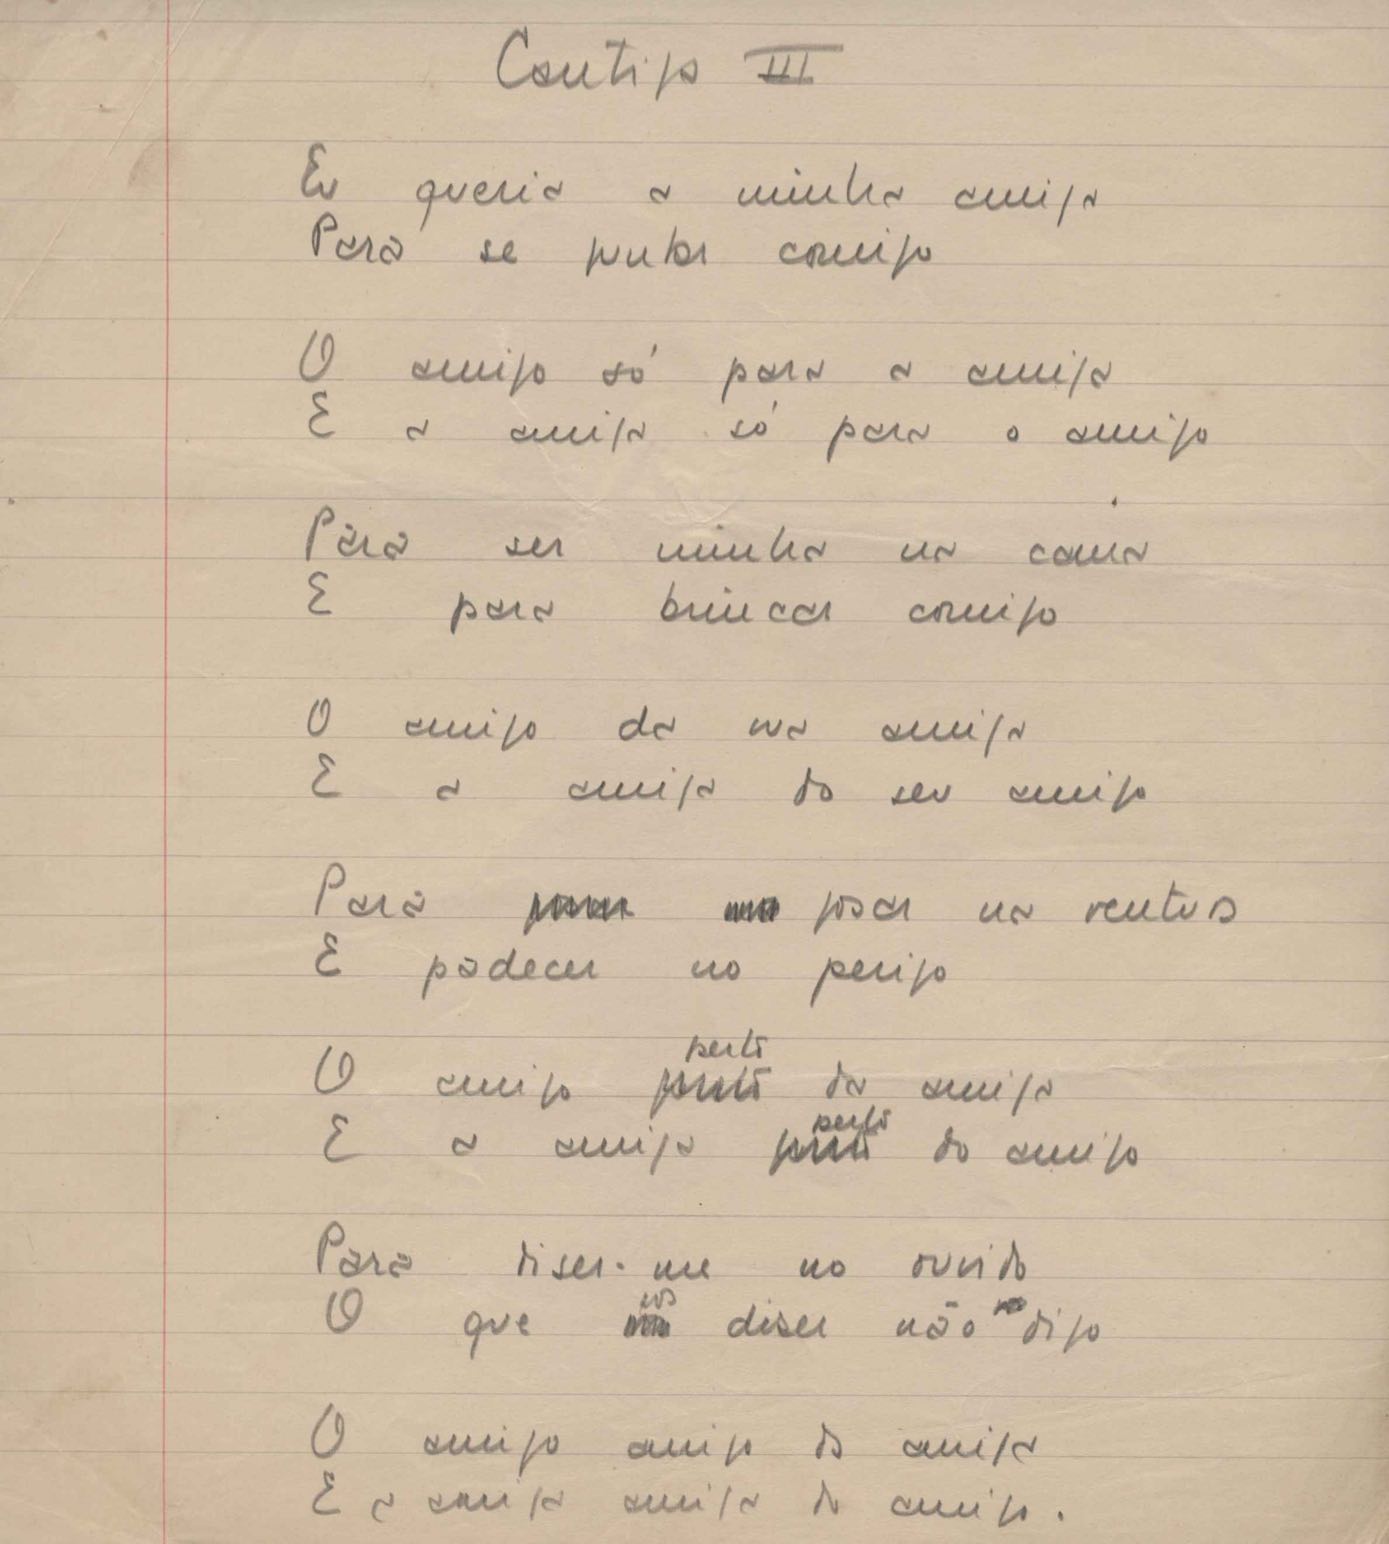 Cantiga III
Eu queria a minha amiga
Para se juntar comigo
O amigo só para a amiga
E a amiga só para o amigo
Para ser minha na cama
E para brincar comigo
O amigo da sua amiga
E a amiga do seu amigo
Para gozar na ventura
E padecer no perigo
perto
O amigo junto da amiga
perto
E a amiga junto do amigo
Para diser-me no ouvido
O que diser não digo
O amigo amigo da amiga
E a amiga amiga do amigo.